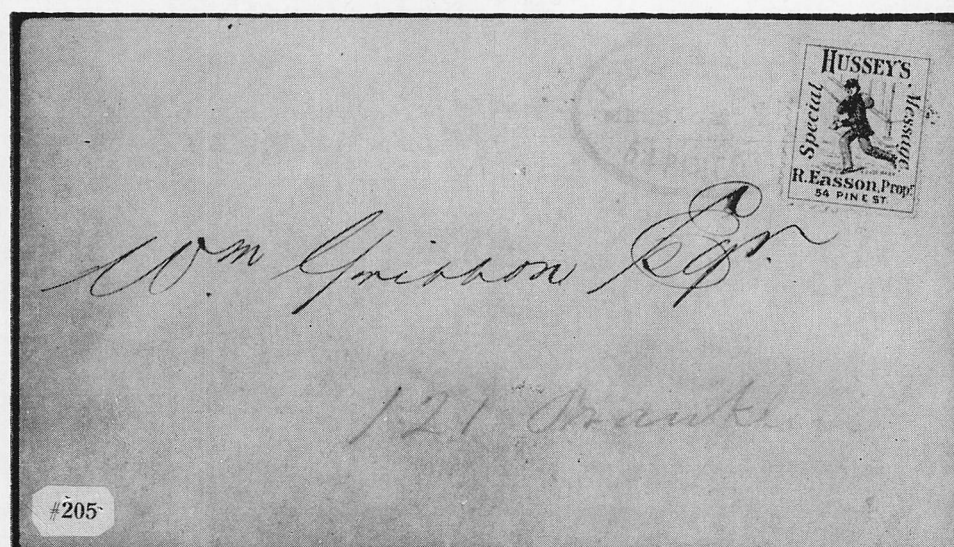 HUSSEY'S
Special Message
R. Easson, Propr
54 PINE ST.
Wm Gribbon Esqr.
121
#205